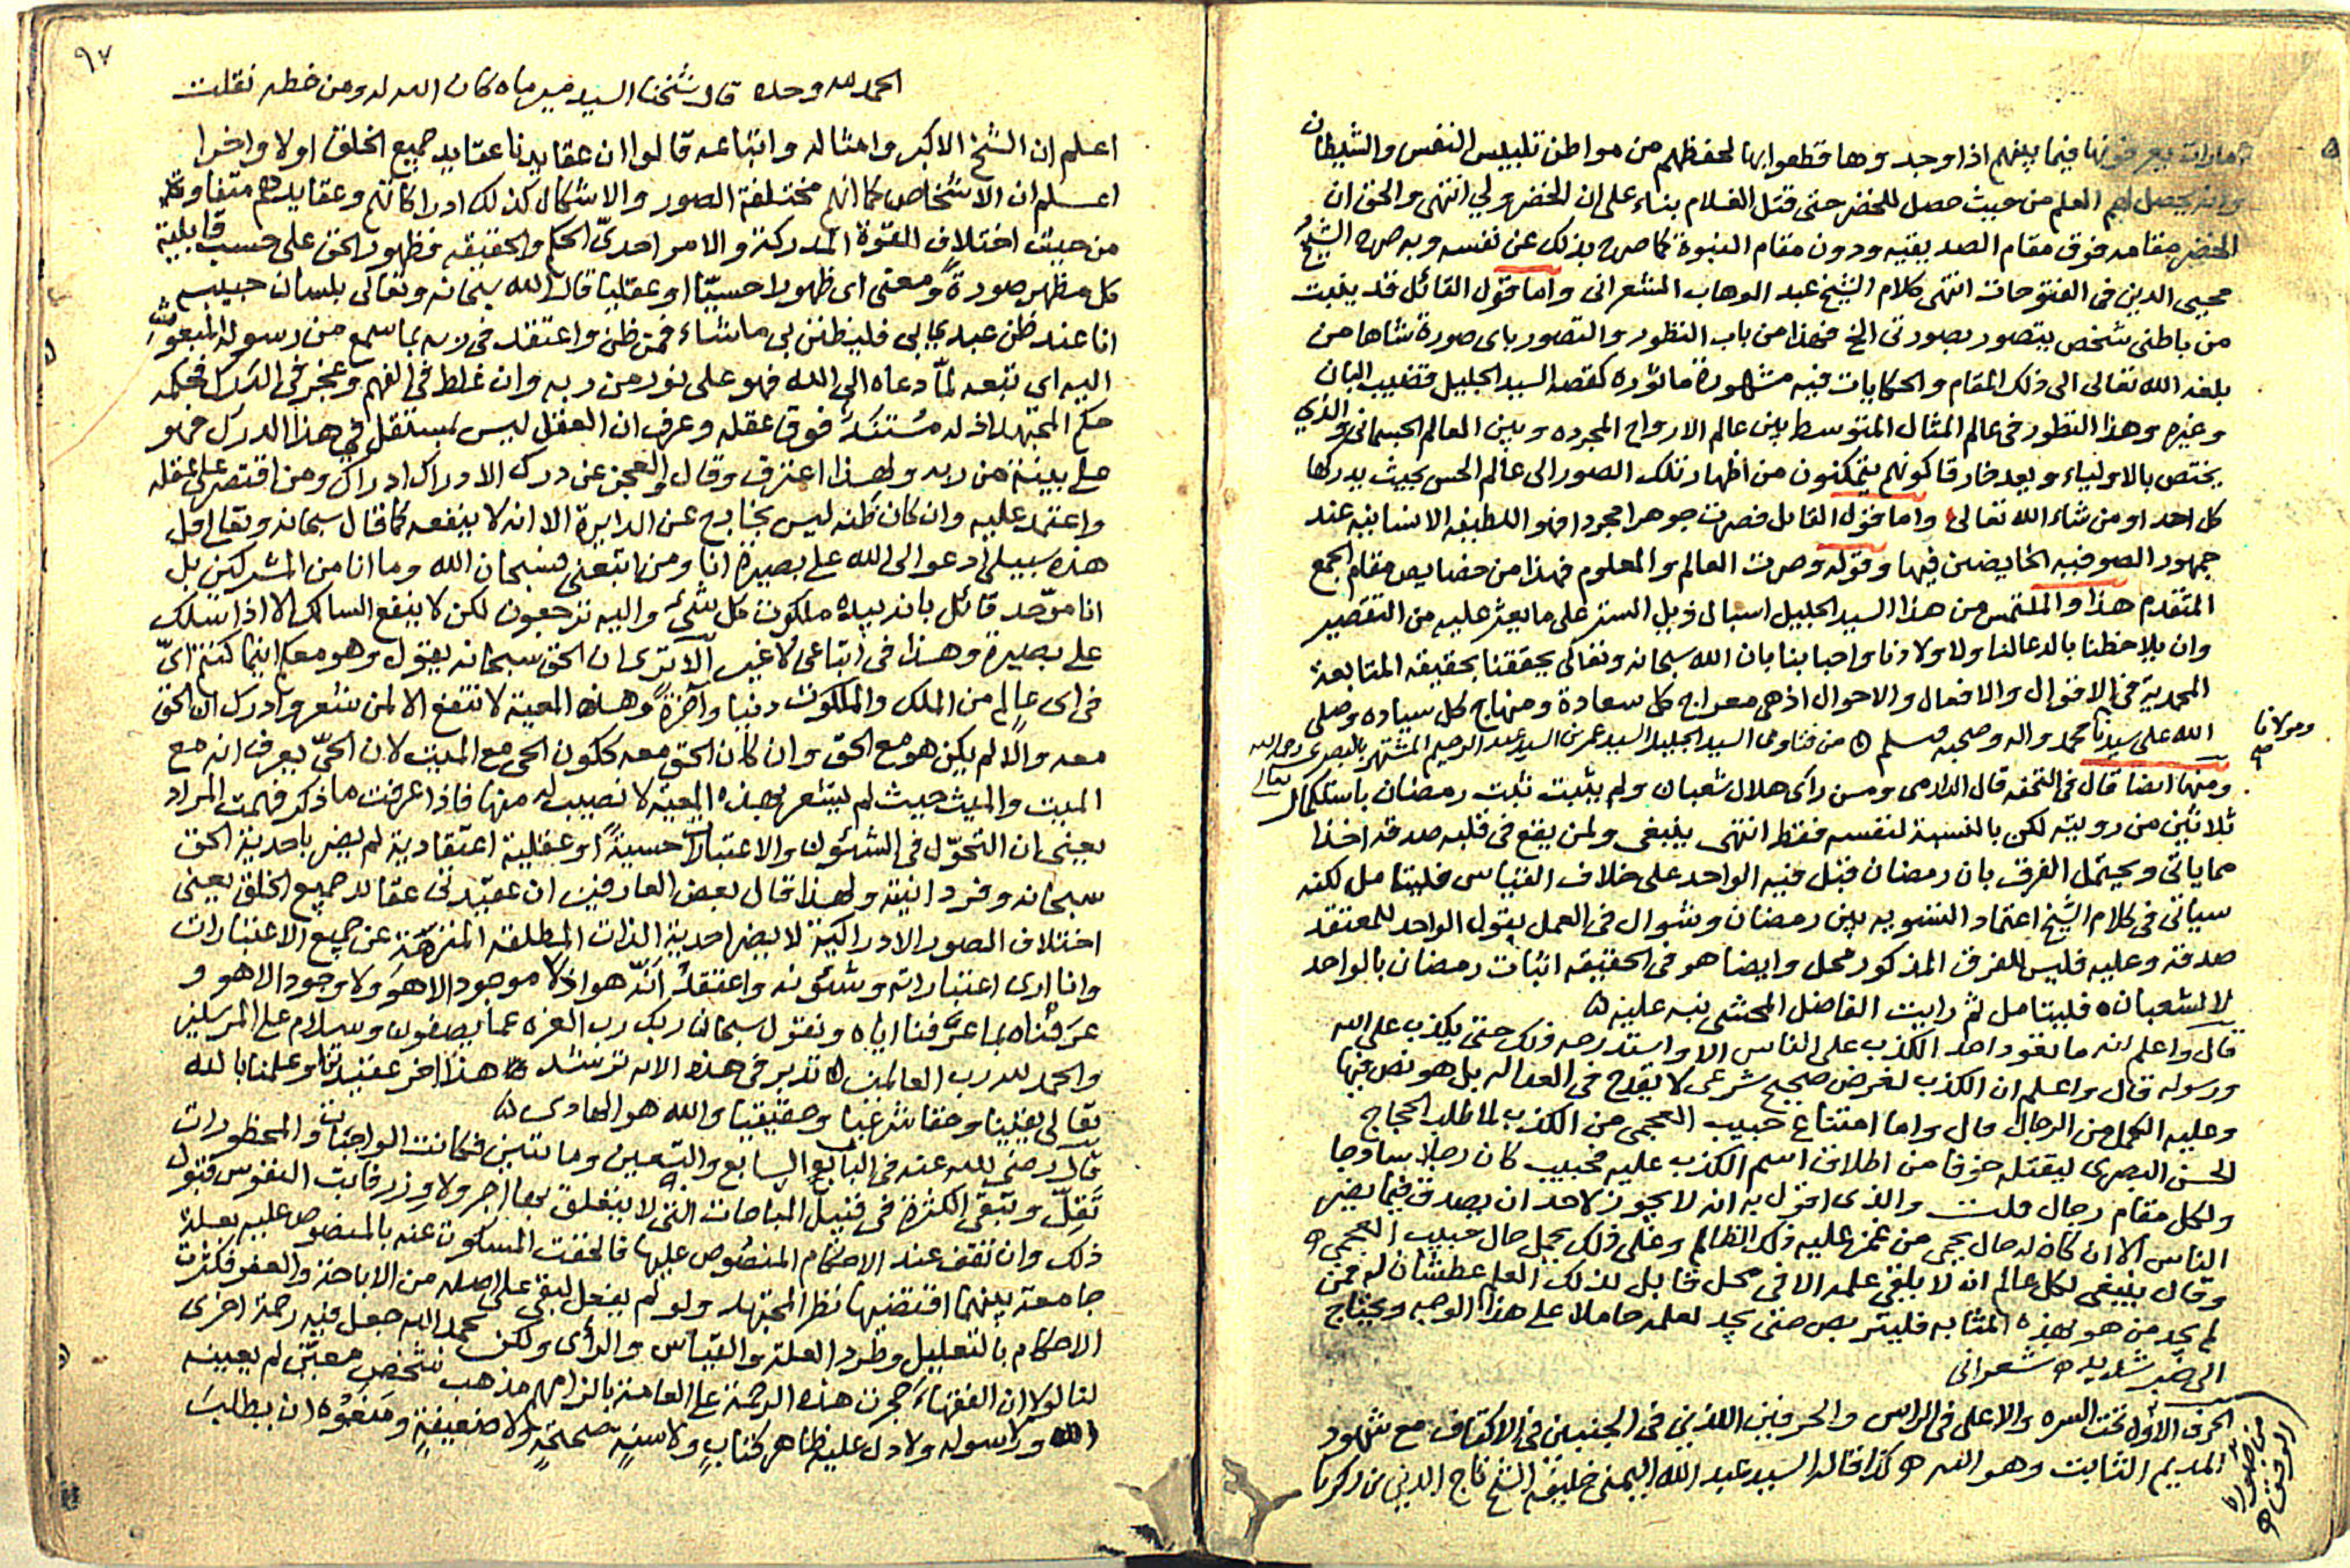 امارات يعرفونها فيما بينهم اذا وجدوها قطعوا بها لحفظهم من مواطن تلبيس النفس والشيطان
وانه يحصل لهم العلم من حيث حصل للخضر حتى قتل الغلام بناء على ان الخضر ولي انتهى والحق ان
الخضر مقامه فوق مقام الصديقيه ودون مقام النبوة كما صرح بذلك عن نفسه وبه صرح الشيخ
محيي الدين في الفتوحات انتهى كلام الشيخ عبد الوهاب الشعراني واما قول القائل قد يثبت
من باطني شخص يتصور بصورتي الخ فهذا من باب التطور والتصور باى صورة شاها من
بلغه الله تعالى الى ذلك المقام والحكايات فيه مشهورة ماثوره كقصه السيد الجليل قضيب البان
وغيره وهذا التطور في عالم المثال المتوسط بين عالم الارواح المجرده وبين العالم الجسماني والذي
يختص بالاولياء ويعد خارقا كونهم يتمكنون من اظهار تلك الصور الى عالم الحس بحيث يدركها
كل احد او من شاء الله تعالى واما قول القايل فصرت جوهرا مجردا فهو اللطيفه الانسانيه عند
جمهور الصوفيه الخايضين فيها وقوله وصرت العالم والمعلوم فهذا من خصايص مقام الجمع
المتقدم هذا والملتمس من هذا السيد الجليل اسبال ذيل الستر على ما يعثر عليه من التقصير
وان يلاحظنا بالدعا لنا ولاولادنا واحبابنا بان الله سبحانه وتعالى يحققنا بحقيقه المتابعة
المحمدية في الاقوال والافعال والاحوال اذ هي معراج كل سعادة ومنهاج كل سياده وصلى
الله على سيدنا محمد واله وصحبه وسلم من فتاوى السيد الجليل السيد عمر بن السيد عبد الرحيم المشتهر بالبصرى رحمه الله
ومولانا صح
تعالى
ومنها ايضا قال في التحفه قال الدارمى ومن راى هلال شعبان ولم يثبت ثبت رمضان باستكمال
ثلاثين من رويته لكن بالنسبة لنفسه فقط انتهى ينبغي ولمن يقع في قلبه صدقه اخذا
مما ياتى ويحتمل الفرق بان رمضان قبل فيه الواحد على خلاف القياس فليتامل لكنه
سياتى في كلام الشيخ اعتماد التسويه بين رمضان وشوال في العمل بقول الواحد للمعتقد
صدقه وعليه فليس للفرق المذكور محل وايضا هو في الحقيقه اثبات رمضان بالواحد
لا لشعبان فليتامل ثم رايت الفاضل المحشى نبه عليه
قال واعلم انه ما تعود احد الكذب على الناس الا واستدرجه ذلك حتى يكذب على الله
ورسوله قال واعلم ان الكذب لغرض صحيح شرعى لا يقدح في العداله بل هو نص فيها
وعليه الكمل من الرجال قال واما امتناع حبيب العجمى من الكذب لما طلب الحجاج
الحسن البصرى ليقتله خوفا من اطلاق اسم الكذب عليه فحبيب كان رجلا ساذجا
ولكل مقام رجال قلت والذى اقول به انه لا يجوز لاحد ان يصدق فيما يضر
الناس الا ان كان له حال يحمى من غمز عليه ذلك الظالم وعلى ذلك يحمل حال حبيب العجمي
وقال ينبغى لكل عالم ان لا يلقى علمه الا في محل قابل لذلك العلم عطشان له فمن
لم يجد من هو بهذه المثابه فليتربص حتى يجد لعلمه حاملا على هذا الوجه ويحتاج
الى صبر شديد شعرانى
الحرف الاول تحت السره والاعلى في الراس والحرفين اللذين في الجنبين في الاكتاف مع شهود
المديم الثابت وهو الله كذا قاله السيد عبد الله اليمني خليفة الشيخ تاج الدين بن زكريا
٩٧
الحمد لله وحده قال شيخنا السيد ميرماه كان الله له ومن خطه نقلت
اعلم ان الشيخ الاكبر وامثاله واتباعه قالوا ان عقايدنا عقايد جميع الخلق اولا واخرا
اعلم ان الاشخاص كما انهم مختلفة الصور والاشكال كذلك ادراكاتهم وعقايدهم متفاوتة
من حيث اختلاف القوة المدركة والامر احدىّ الحكم والحقيقه فظهور الحق على حسب قابلية
كل مظهر صورةً ومعنى اى ظهورا حسيّا او عقليا قال الله سبحانه وتعالى بلسان حبيبه
انا عند ظن عبدى بى فليظنن بى ما شاء فمن ظن واعتقد في ربه بما سمع من رسوله المبعوث
اليه اى تبعه لمّا دعاه الى الله فهو على نور من ربه وان غلط في الفهم وعجز في الدرك فحكمه
حكم المجتهد اذ له مستندٌ فوق عقله وعرف ان العقل ليس بمستقل في هذا الدرك فهو
على بينة من ربه ولهذا اعترف وقال والعجز عن درك الادراك ادراك ومن اقتصر على عقله
واعتمد عليه وان كان ظنه ليس بخارج عن الدايرة الا انه لا ينفعه كما قال سبحانه وتعالى قل
هذه سبيلى ادعو الى الله على بصيرة انا ومن اتبعنى وسبحان الله وما انا من المشركين بل
انا موّحد قائل بان بيده ملكوت كل شئ واليه ترجعون لكن لا ينفع السالك الا اذا سلك
على بصيرة وهذا في اتباعى لا غير الا ترى ان الحق سبحانه يقول وهو معكم اينما كنتم اىّ
في اى عالم من الملك والملكوت دنيا وآخرةً وهذه المعية لا تنفع الا لمن شعر وادرك ان الحق
معه والا لم يكن هو مع الحق وان كان الحق معه ككون الحى مع الميت لان الحىّ يعرف انه مع
الميت والميت حيث لم يشعر بهذه المعية لا نصيب له منها فاذا عرفت ما ذكر فهمت المراد
يعنى ان التحوّل في الشئون والاعتبارات حسيةً او عقلية اعتقادية لم يضر باحدية الحق
سبحانه وفردانيته ولهذا قال بعض العارفين ان عقيدتى عقايد جميع الخلق يعنى
اختلاف الصور الادراكية لا يضر احدية الذات المطلقه المنزهّة عن جميع الاعتبارات
وانا ارى اعتباراته وشئونه واعتقدُ انّه هو اذ لا موجود الا هو ولا وجود الا هو و
عرَفناه بما عرّفنا اياه ونقول سبحان ربك رب العزه عما يصفون وسلام على المرسلين
والحمد لله رب العالمين تدبر في هذه الايه ترشد هذا اخر عقيدتنا وعلمنا بالله
تعالى يقينا وحقا شرعيا وحقيقيا والله هو الهادى
قال رضى الله عنه في الباب السابع والتسعين ومائتين فكانت الواجبات والمحظورات
تَقِلّ وتبقى الكثرة في قبيل المباحات التى لا يتعلق بها اجر ولا وزر فابت النفوس قبول
ذلك وان تقف عند الاحكام المنصوص عليها فالحقت المسكوت عنه بالمنصوص عليه بعلة
جامعة بينهما اقتضبها نظر المجتهد ولو لم يفعل لبقى على اصله من الاباحة والعفو فكثرت
الاحكام بالتعليل وطرد العلة والقياس والراى ولكن بحمد الله جعل فيه رحمة اخرى
لنا لولا ان الفقهاء حجرت هذه الرحمة على العامة بالزامهم مذهب شخص معيّن لم يعينه
الله ولا رسوله ولا دل عليه ظاهر كتابٍ ولا سنةٍ صحيحةٍ ولا ضعيفةٍ ومنعوه ان يطلب